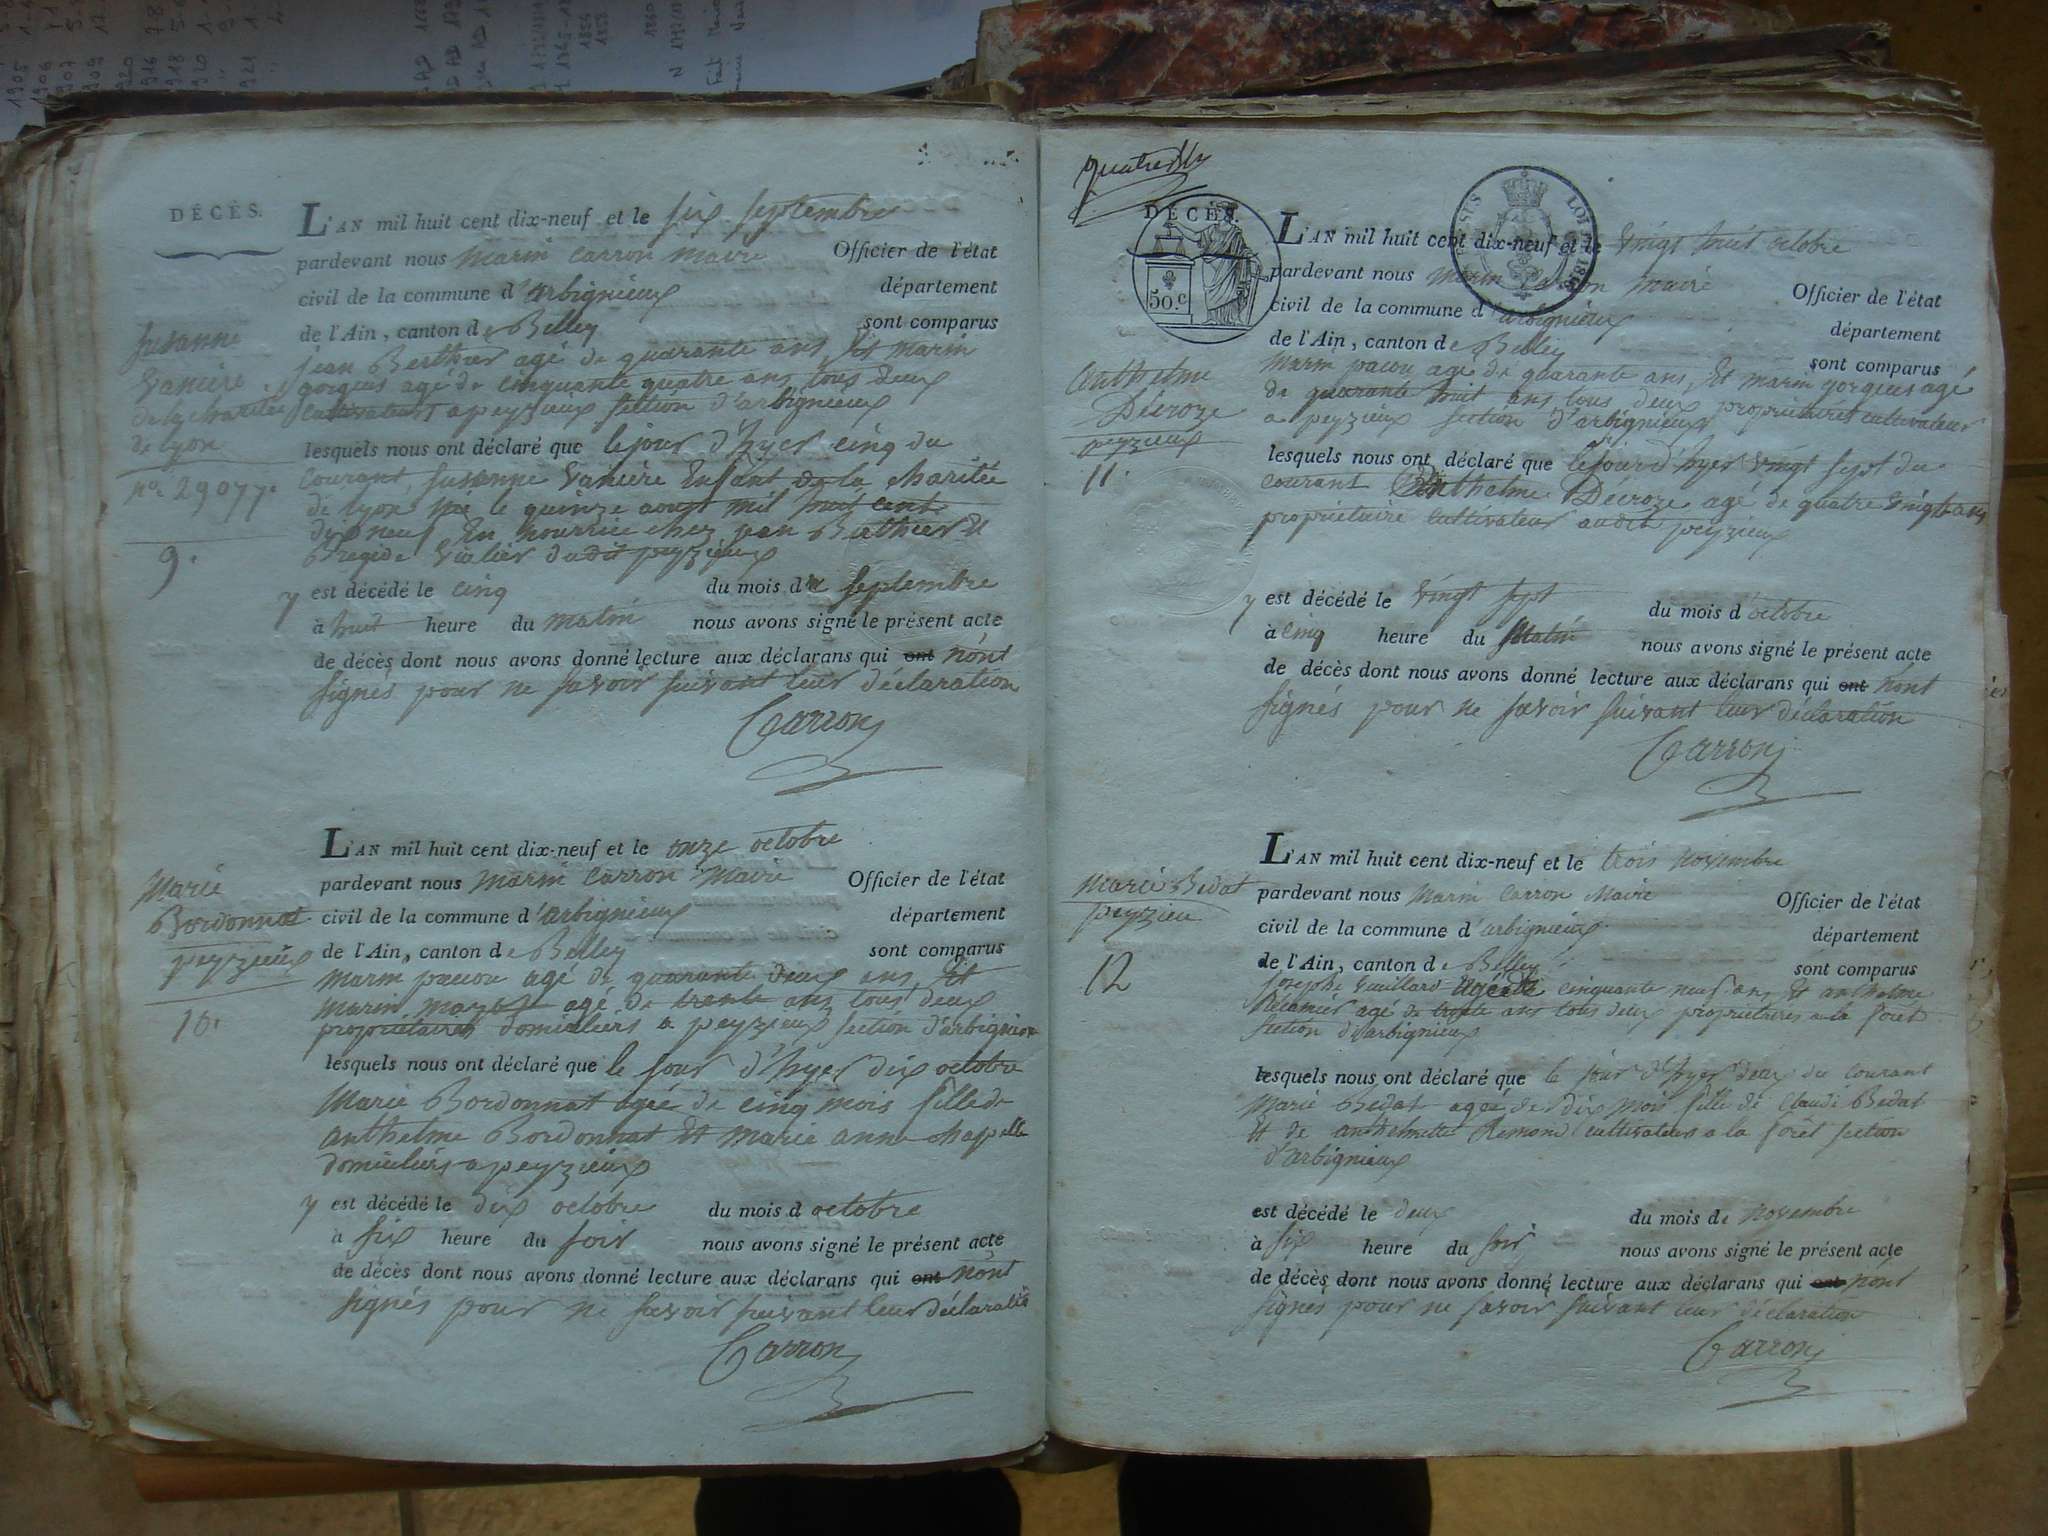 DÉCÈS.
L'AN mil huit cent dix-neuf et le six septembre
pardevant nous Marin Carron Maire Officier de l'état
civil de la commune d'arbignieux département
de l'Ain, canton de Belley sont comparus
jean Berthier agé de quarante ans, Et marin
gorgeus agé de cinquante quatre ans tous deux
cultivateurs a peyzieux section d'arbignieux
lesquels nous ont déclaré que le jour d'hyer cinq du
courant, Susanne Vanière Enfant de la charitée
de lyon né le quinze aout mil huit cent
dix neuf En nourrice chez jean Berthier Et
dudit peyzieux
y est décédé le cinq du mois de septembre
à huit heure du matin nous avons signé le présent acte
de décès dont nous avons donné lecture aux déclarans qui ont n'ont
signés pour ne savoir suivant leur déclaration
Carron
Susanne
Vanière
de la charitée
de lyon
no. 29077.
9.
L'AN mil huit cent dix-neuf et le onze octobre
pardevant nous Marin Carron Maire Officier de l'état
civil de la commune d'arbignieux département
de l'Ain, canton de Belley sont comparus
Marin pacou agé de quarante deux ans, Et
Marin agé de trente ans tous deux
propriétaires domiciliers a peyzieux section d'arbignieux
lesquels nous ont déclaré que le jour d'hyer dix octobre
Marie Bordonnat agée de cinq mois fille de
anthelme Bordonnat Et marie anne chapelle
domiciliers a peyzieux
y est décédé le dix octobre du mois d octobre
à six heure du soir nous avons signé le présent acte
de décès dont nous avons donné lecture aux déclarans qui ont n'ont
signés pour ne savoir suivant leur déclaration
Carron
Marie
Bordonnat
peyzieux
10.
DÉCÈS.
50.c
LOI 1816
L'AN mil huit cent dix-neuf et le vingt huit octobre
pardevant nous Marin Carron Maire Officier de l'état
civil de la commune d'arbignieux département
de l'Ain, canton de Belley sont comparus
Marin pacou agé de quarante ans, Et marin gorgeus agé
de quarante huit ans tous deux propriétaires cultivateur
a peyzieux section d'arbignieux
lesquels nous ont déclaré que le jour d'hyer vingt sept du
courant Anthelme Décroze agé de quatre vingt ans
propriétaire cultivateur audit peyzieux
y est décédé le vingt sept du mois d'octobre
à cinq heure du Matin nous avons signé le présent acte
de décès dont nous avons donné lecture aux déclarans qui ont n'ont
signés pour ne savoir suivant leur déclaration
Carron
Anthelme
Décroze
peyzieux
11.
L'AN mil huit cent dix-neuf et le trois novembre
pardevant nous Marin Carron Maire Officier de l'état
civil de la commune d'arbignieux département
de l'Ain, canton de Belley sont comparus
Josephe Vuillard agé de cinquante neuf ans Et anthelme
agé de trente ans tous deux propriétaires a la foret
section d'arbignieux
lesquels nous ont déclaré que le jour d'hyer deux du courant
Marie Bedat agée de dix mois fille de Claude Bedat
Et de Remond cultivateurs a la forêt section
d'arbignieux
est décédé le deux du mois de novembre
à six heure du soir nous avons signé le présent acte
de décès dont nous avons donné lecture aux déclarans qui ont n'ont
signés pour ne savoir suivant leur déclaration
Carron
Marie Bedat
peyzieu
12